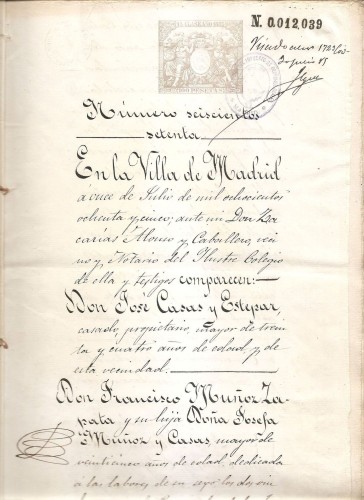 N. 0.012,039
Número seiscientos
setenta
En la Villa de Madrid
á once de Julio de mil ochocientos
ochenta y cinco, ante mi Don Za-
carías Alonso y Caballero, veci-
no y Notario del Ilustre Colegio
de ella y testigos comparecen:
Don José Casas y Estepar,
casado, propietario, mayor de trein-
ta y cuatro años de edad y de
esta vecindad.
Don Francisco Muñoz Za-
pata y su hija Doña Josefa
Muñoz y Casas, mayor de
veinticinco años de edad, dedicada
á las labores de su sexo los dos